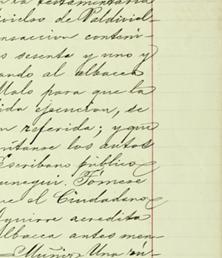 la testamentaria
viclos de Valdiviel-
nsaccion conteni-
s sesenta y uno y
ando al albacea
Malo para que la
ida ejecucion, se
n referida; y que
ritanse los autos
Escribano público
unequi. Fórmese
ue el Ciudadano
guirre acredita
lbacea antes men-
Muñoz. Una rú-